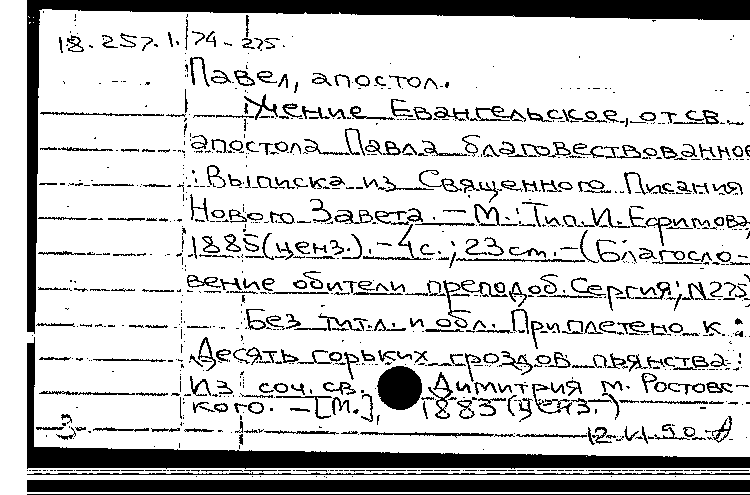 18.257.1.74-275.
Павел, апостол.
Учение Евангельское, от св.
апостола Павла благовествованное
: Выписка из Священного Писания
Нового Завета. - М.: Тип. И. Ефимова,
1885 (ценз.). - 4с.; 23см. - (Благосло-
вение обители преподоб. Сергия; N275)
Без титл. и обл. Приплетено к:
Десять горьких гроздов пьянства:
Из соч. св. Димитрия м. Ростовс-
кого. - [М.], 1883 (ценз.)
3